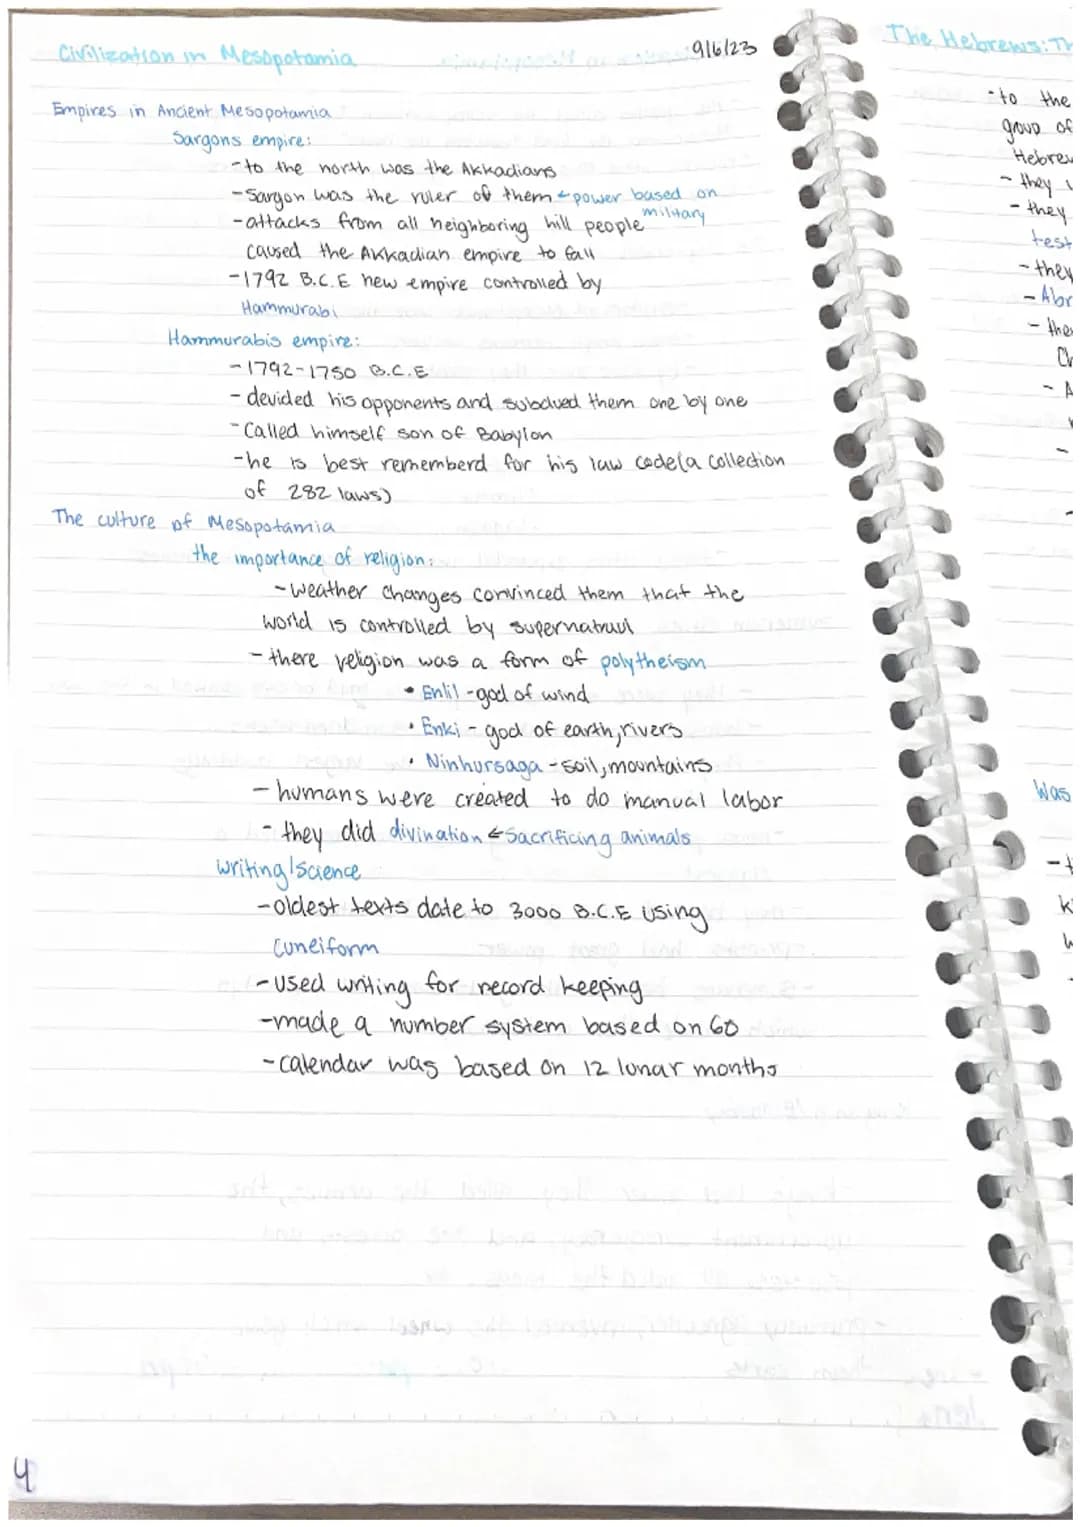 Civilization in Mesopotamia
9/6/23
Empires in Ancient Mesopotamia
Sargons empire:
-to the north was the Akkadians
-Sargon was the ruler of them ← power based on military
-attacks from all neighboring hill people
caused the Akkadian empire to fall
-1792 B.C.E new empire controlled by
Hammurabi
Hammurabis empire:
-1792-1750 B.C.E
-devided his opponents and subdued them one by one
-Called himself son of Babylon
-he is best rememberd for his law code(a collection
of 282 laws)
The culture of Mesopotamia
the importance of religion:
-weather changes convinced them that the
world is controlled by supernatraul
-there religion was a form of polytheism
• Enlil -god of wind
• Enki - god of earth, rivers
• Ninhursaga - soil, mountains
-humans were created to do manual labor
-they did divination ← Sacrificing animals
Writing/Science
-oldest texts date to 3000 B.C.E using
Cuneiform
-used writing for record keeping
-made a number system based on 60
-calendar was based on 12 lunar months
4
The Hebrews: Th
-to the
goup of
Hebrew
- they
- they
test
- they
- Abr
- the
Ch
- A
Was